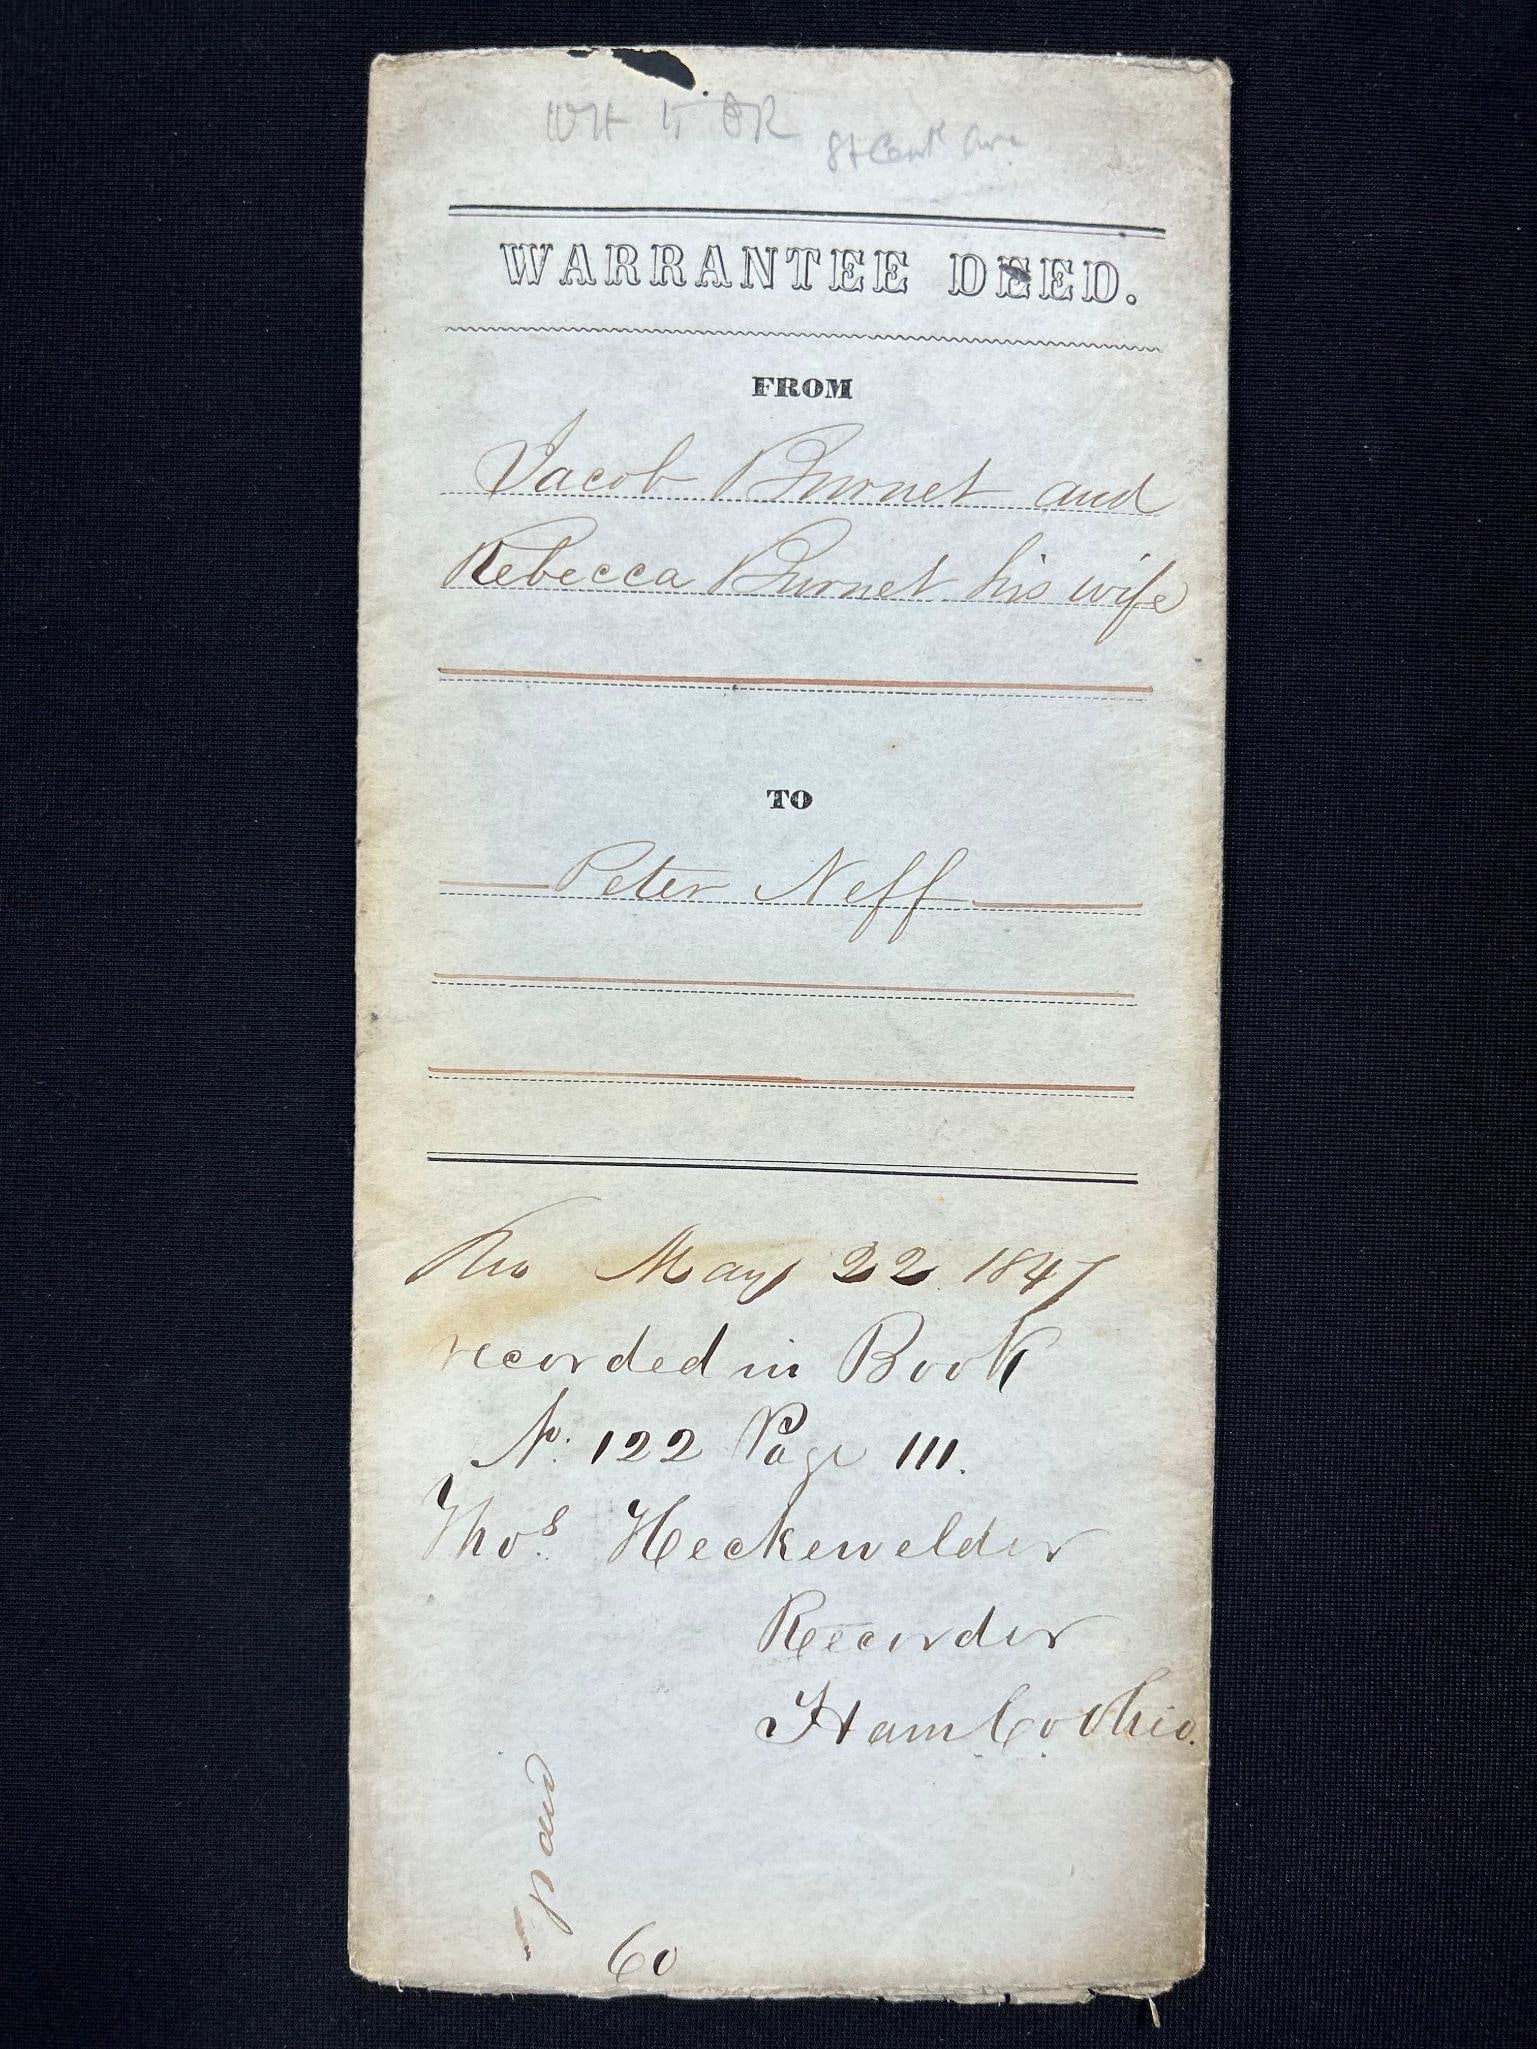 WARRANTEE DEED.
FROM
Jacob Burnet and
Rebecca Burnet his wife
TO
Peter Neff
Rec May 22 1847
recorded in Book
No. 122 Page 111.
Thos. Heckewelder
Recorder
Ham Co Ohio.
paid
60